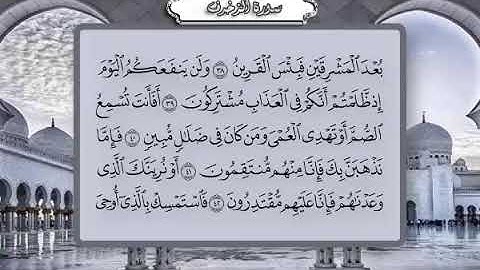 سورة الزخرف
بُعْدَ ٱلْمَشْرِقَيْنِ فَبِئْسَ ٱلْقَرِينُ ٣٨ وَلَن يَنفَعَكُمُ ٱلْيَوْمَ
إِذ ظَّلَمْتُمْ أَنَّكُمْ فِى ٱلْعَذَابِ مُشْتَرِكُونَ ٣٩ أَفَأَنتَ تُسْمِعُ
ٱلصُّمَّ أَوْ تَهْدِى ٱلْعُمْىَ وَمَن كَانَ فِى ضَلَٰلٍ مُّبِينٍ ٤٠ فَإِمَّا
نَذْهَبَنَّ بِكَ فَإِنَّا مِنْهُم مُّنتَقِمُونَ ٤١ أَوْ نُرِيَنَّكَ ٱلَّذِى
وَعَدْنَٰهُمْ فَإِنَّا عَلَيْهِم مُّقْتَدِرُونَ ٤٢ فَٱسْتَمْسِكْ بِٱلَّذِىٓ أُوحِىَ